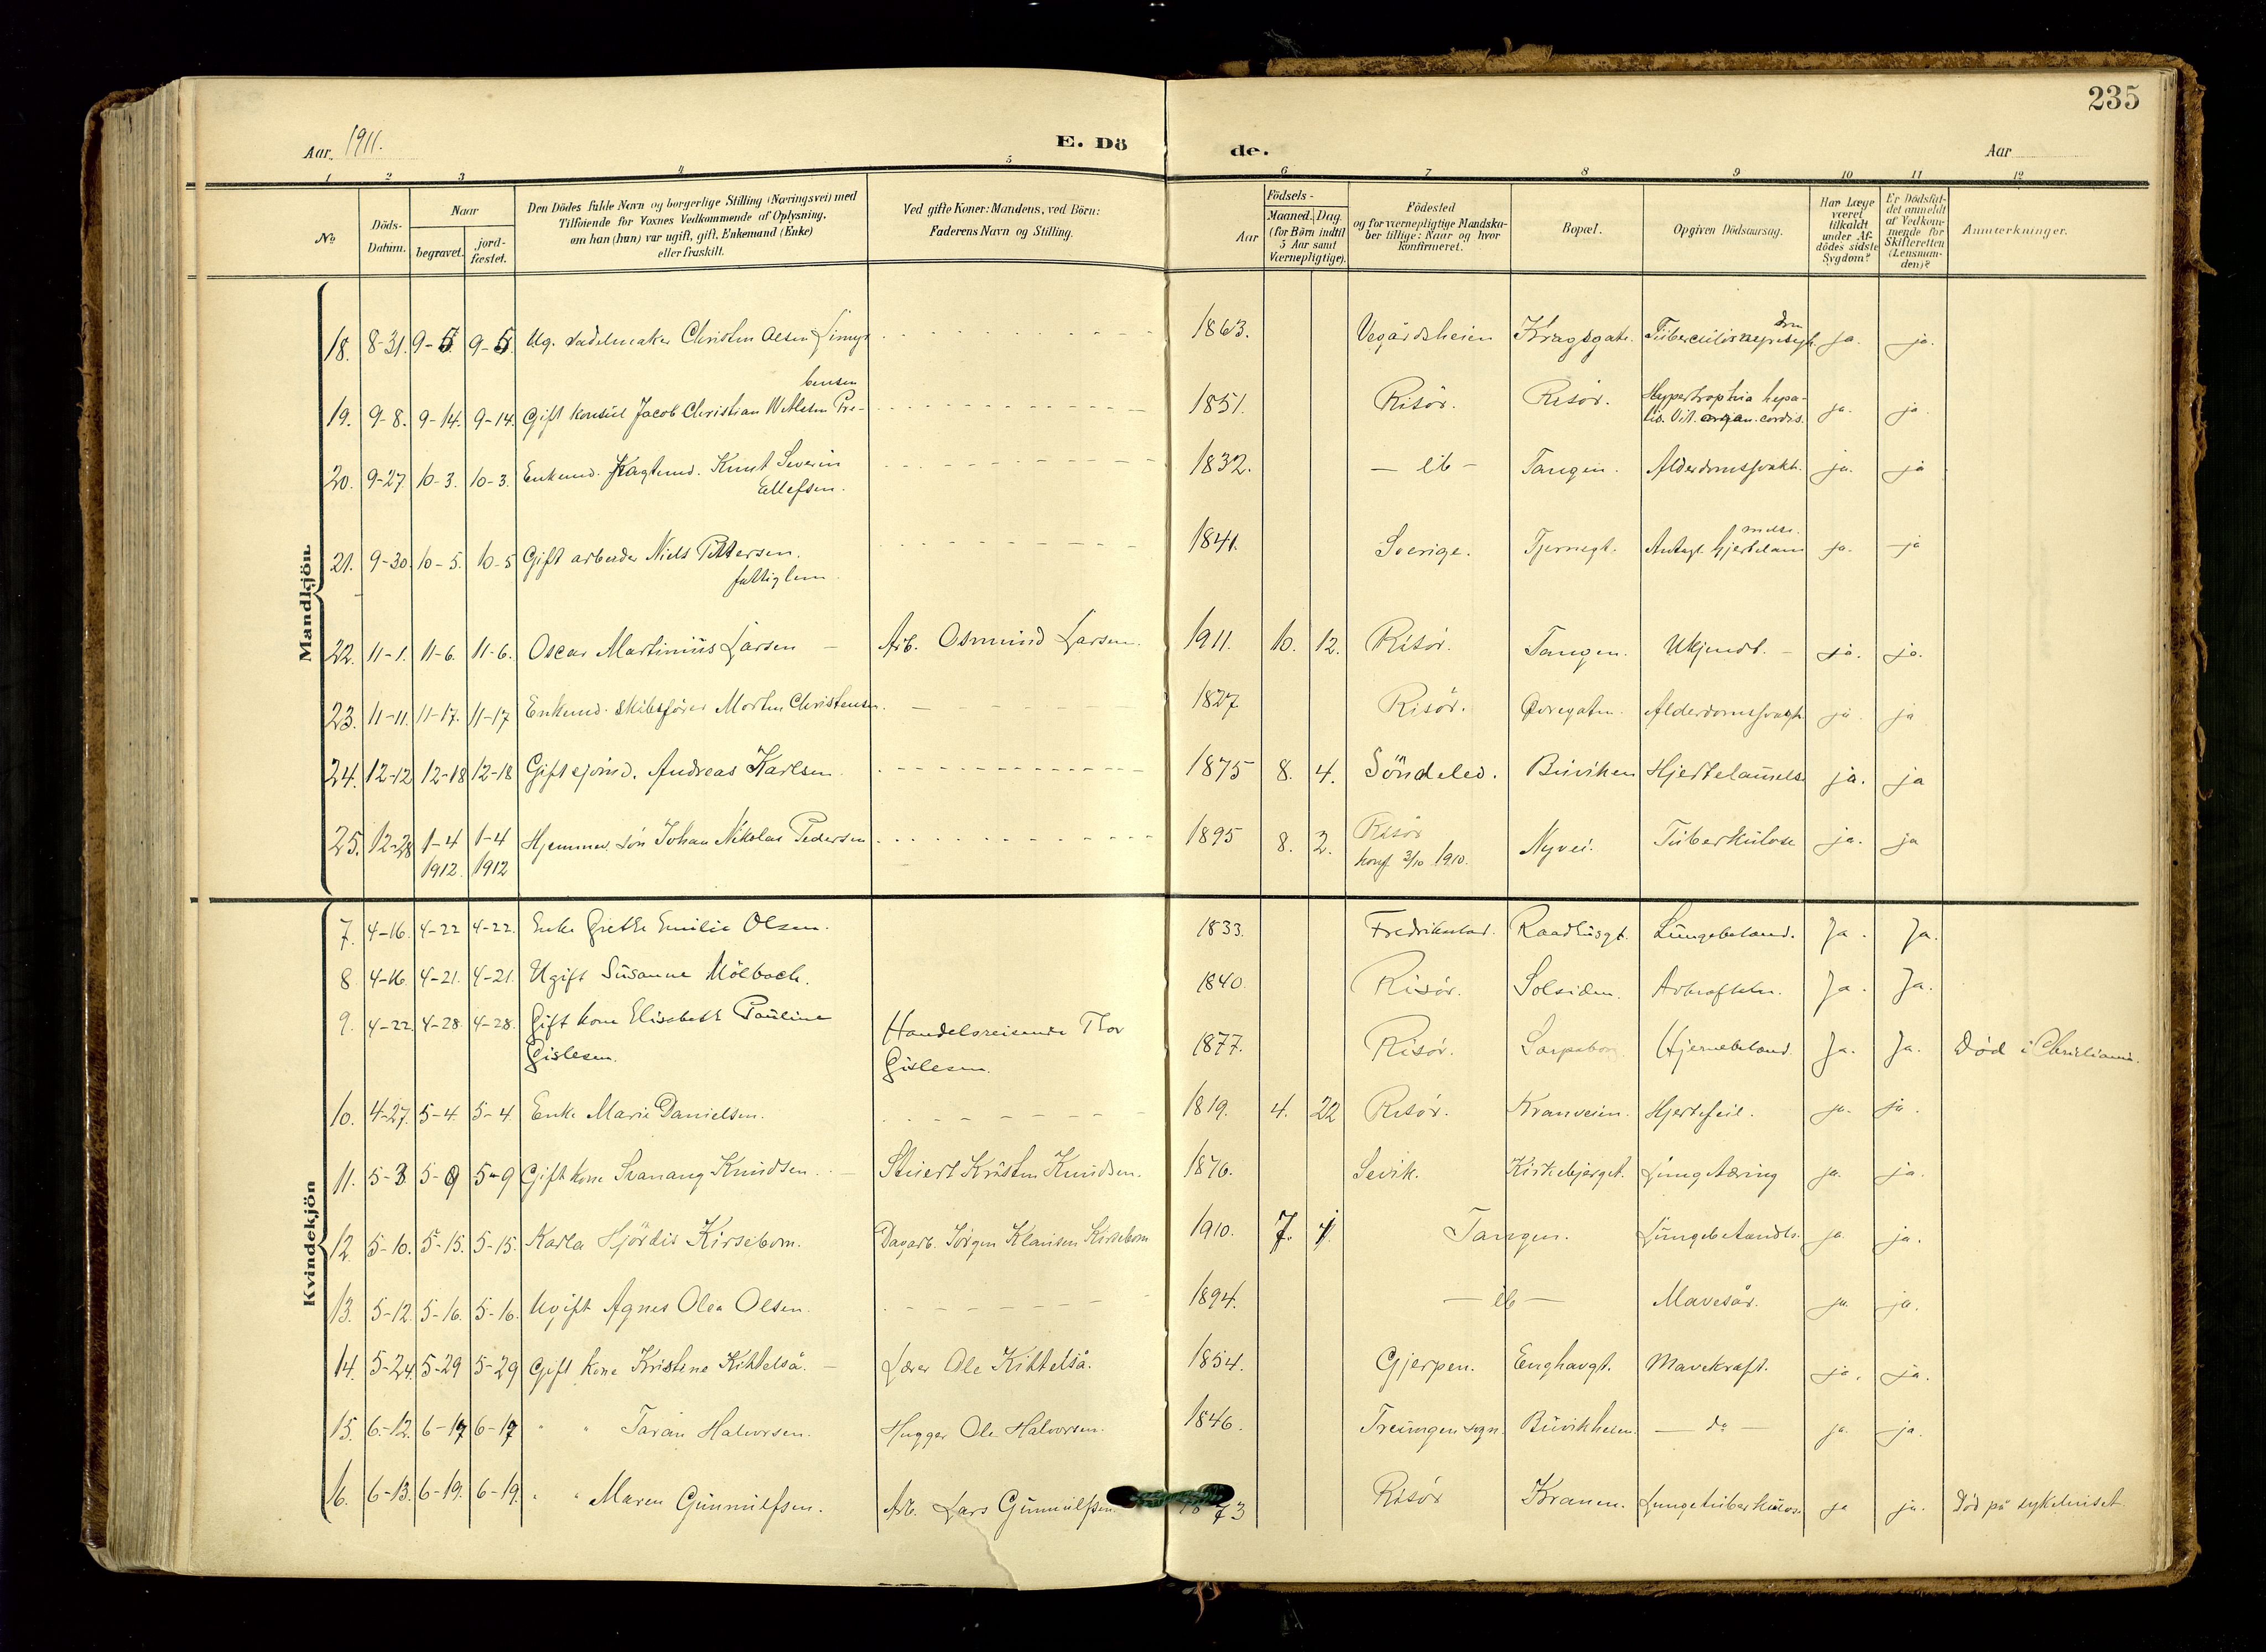 235
Aar 1911.
E. Dö
de.
Aar
1 2 3 4 5 6 7 8 9 10 11 12
No
Döds-
Datum.
Naar
begravet.
jord-
fæstet.
Den Dödes fulde Navn og borgerlige Stilling (Næringsvei) med
Tilföiende for Voxnes Vedkommende af Oplysning,
om han (hun) var ugift, gift, Enkemand (Enke)
eller fraskilt.
Ved gifte Koner: Mandens, ved Börn:
Faderens Navn og Stilling.
Födsels-
Aar
Maaned. Dag.
(for Börn indtil
5 Aar samt
Værnepligtige).
Födested
og for værnepligtige Mandska-
ber tillige: Naar og hvor
konfirmeret.
Bopæl.
Opgiven Dödsaarsag.
Har Læge
været
tilkaldt
under Af-
dödes sidste
Sygdom?
Er Dödsfal-
det anmeldt
af Vedkom-
mende for
Skifteretten
(Lensman-
den)?
Anmærkninger.
Mandkjön.
18. 8-31. 9-5. 9-5. Ug. sadelmaker Christen Olsen 1863. Vegårdsheien Kragsgate. ja. ja.
19. 9-8. 9-14. 9-14. Gift konsul Jacob Christian Wetlesen Pre-
bensen 1851. Risör. Risör. Hypertrophia hepa-
tis. Vit. organ. cordis. ja. ja
20. 9-27. 10-3. 10-3. Enkemd. Knut Severin
Ellefsen. 1832. — ib — Tangen. Alderdomssvakh. ja. ja
21. 9-30. 10-5. 10-5 Gift arbeider Niels Pettersen.
fattiglem. 1841. Sverige. Tjernegt. Antagl. hjertelam
melse. ja. ja
22. 11-1. 11-6. 11-6. Oscar Martinius Larsen — Arb. Osmund Larsen. 1911. 10. 12. Risör. Tangen. Ukjendt. — ja. ja.
23. 11-11. 11-17. 11-17 Enkemd. skibsförer Morten Christensen. 1827 Risör. Övregaten. Alderdomssvagh. ja. ja
24. 12-12 12-18 12-18 Gift ejörmd. Andreas Karlsen. 1875 8. 4. Söndeled. Buviken Hjertelammelse ja. ja
25. 12-28 1-4 1-4 Hjemmev. sön Johan Nikolai Pedersen 1895 8. 2. Risör Nyvei. Tuberkulose ja. ja
1912. 1912 konf. 2/10 1910.
Kvindekjön
7. 4-16. 4-22 4-22. Enke Grethe Emilie Olsen. 1833. Fredrikstad. Raadhusgt. Lungebetænd. Ja. Ja.
8 4-16. 4-21. 4-21. Ugift Susanne Mölbach. 1840. Risör. Solsiden. Ja. Ja.
9. 4-22 4-28. 4-28. Gift kone Elisabeth Pauline
Gislesen. Handelsreisende Thor
Gislesen. 1877. Risör. Sarpsborg Hjernebetænd. Ja. Ja. Död i Christiania.
10. 4-27. 5-4. 5-4. Enke Marie Danielsen. 1819. 4. 22 Risör. Kranveien. Hjertefeil. ja. ja.
11. 5-3 5-9 5-9 Gift kone Svanaug Knudsen. Stuert Kristen Knudsen. 1876. Sevik. Kirkebjerget. Lungetæring ja. ja.
12 5-10. 5-15. 5-15. Karla Hjördis Kirsebom. Dagarb. Jörgen Klausen Kirsebom 1910. 7. 1. Tangen. Lungebetændls. ja. ja.
13. 5-12. 5-16. 5-16. Ugift Agnes Olea Olsen. 1894. — ib — Mavesår. ja. ja.
14. 5-24. 5-29 5-29 Gift kone Kristine Kittelså. — Lærer Ole Kittelså. 1854. Gjerpen. Enghavgt. Mavekræft. ja. ja.
15. 6-12. 6-17 6-17 " " Taran Halvorsen. Hugger Ole Halvorsen. 1846. Treungen sogn. Buvikheien. — do — ja. ja.
16. 6-13. 6-19. 6-19. " " Maren Gunnulfsen. Arb. Lars Gunnulfsen 1873 Risör Kranen. Lungetuberkulose ja ja. Död på sykehuset.